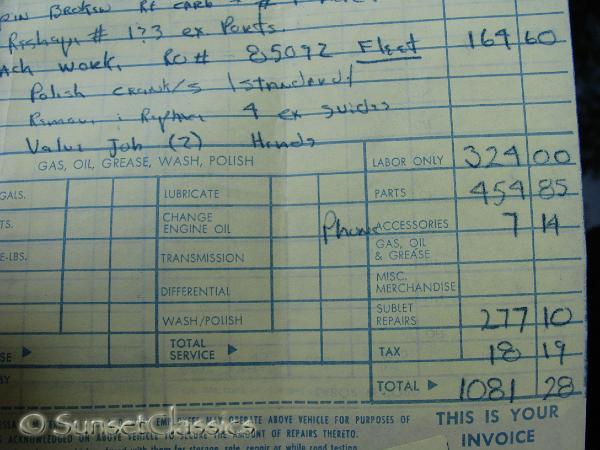 BROKEN Rt CARB
# 1?3 ex Ports.
work. RO# 85092 Fleet 164 60
Polish crank/s (standard)
4 ex guides
Job (2) Heads
GAS, OIL, GREASE, WASH, POLISH LABOR ONLY 324 00
GALS. LUBRICATE PARTS 454 85
TS. CHANGE ENGINE OIL Phone ACCESSORIES 7 14
E-LBS. TRANSMISSION GAS, OIL & GREASE
DIFFERENTIAL MISC. MERCHANDISE
WASH/POLISH SUBLET REPAIRS 277 10
SE ▶ TOTAL SERVICE ▶ TAX 18 19
BY TOTAL ▶ 1081 28
EMPLOYEES MAY OPERATE ABOVE VEHICLE FOR PURPOSES OF THIS IS YOUR
IS ACKNOWLEDGED ON ABOVE VEHICLE TO SECURE THE AMOUNT OF REPAIRS THERETO. INVOICE
for storage, sale, repair or while road testing
© SunsetClassics